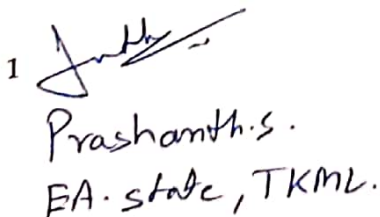 1
Prashanth.s.
EA. state, TKML.